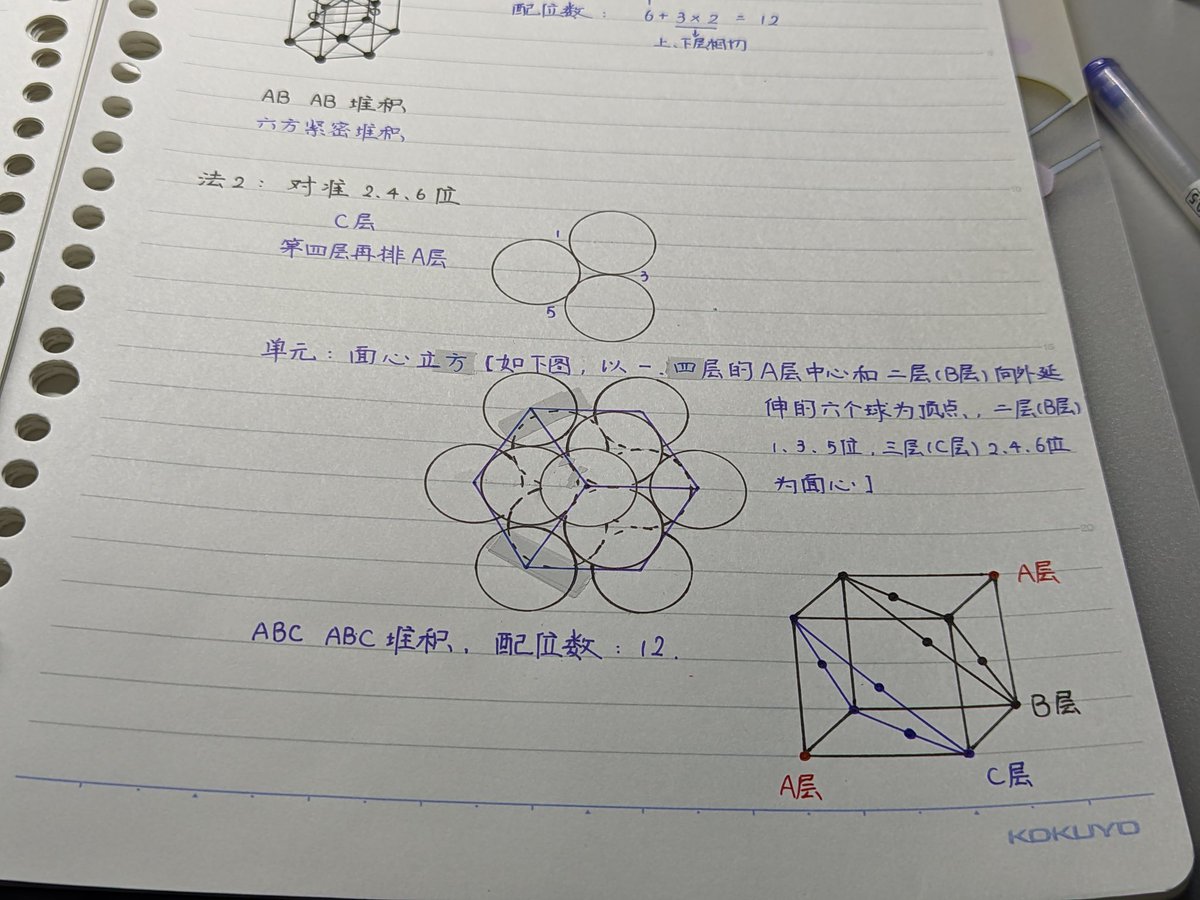 配位数： 6 + 3 × 2 = 12
上、下层相切
AB AB 堆积
六方紧密堆积
法2： 对准 2、4、6 位
C层
第四层再排A层
1
3
5
单元：面心立方【如下图，以一、四层的A层中心和二层(B层)向外延
伸的六个球为顶点，二层(B层)
1、3、5位，三层(C层) 2、4、6位
为面心】
ABC ABC 堆积，配位数：12.
A层
B层
A层
C层
KOKUYO
10
15
20